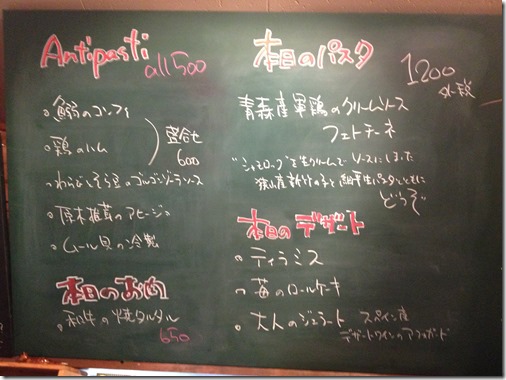 Antipasti
all 500
・鰯のコンフィ
・鶏のハム
盛合せ
600
・わらびとそら豆のゴルゴンゾーラソース
・原木椎茸のアヒージョ
・ムール貝の冷製
本日のお肉
・和牛の焼タルタル
650
本日のパスタ
1200
外税
青森産軍鶏のクリームソース
フェトチーネ
"シャモロック"を生クリームでソースにしました
狭山産 のこと 生パスタとともに
どうぞ
本日のデザート
・ティラミス
・苺のロールケーキ
・大人のジェラート スペイン産
デザートワインのアフォガード